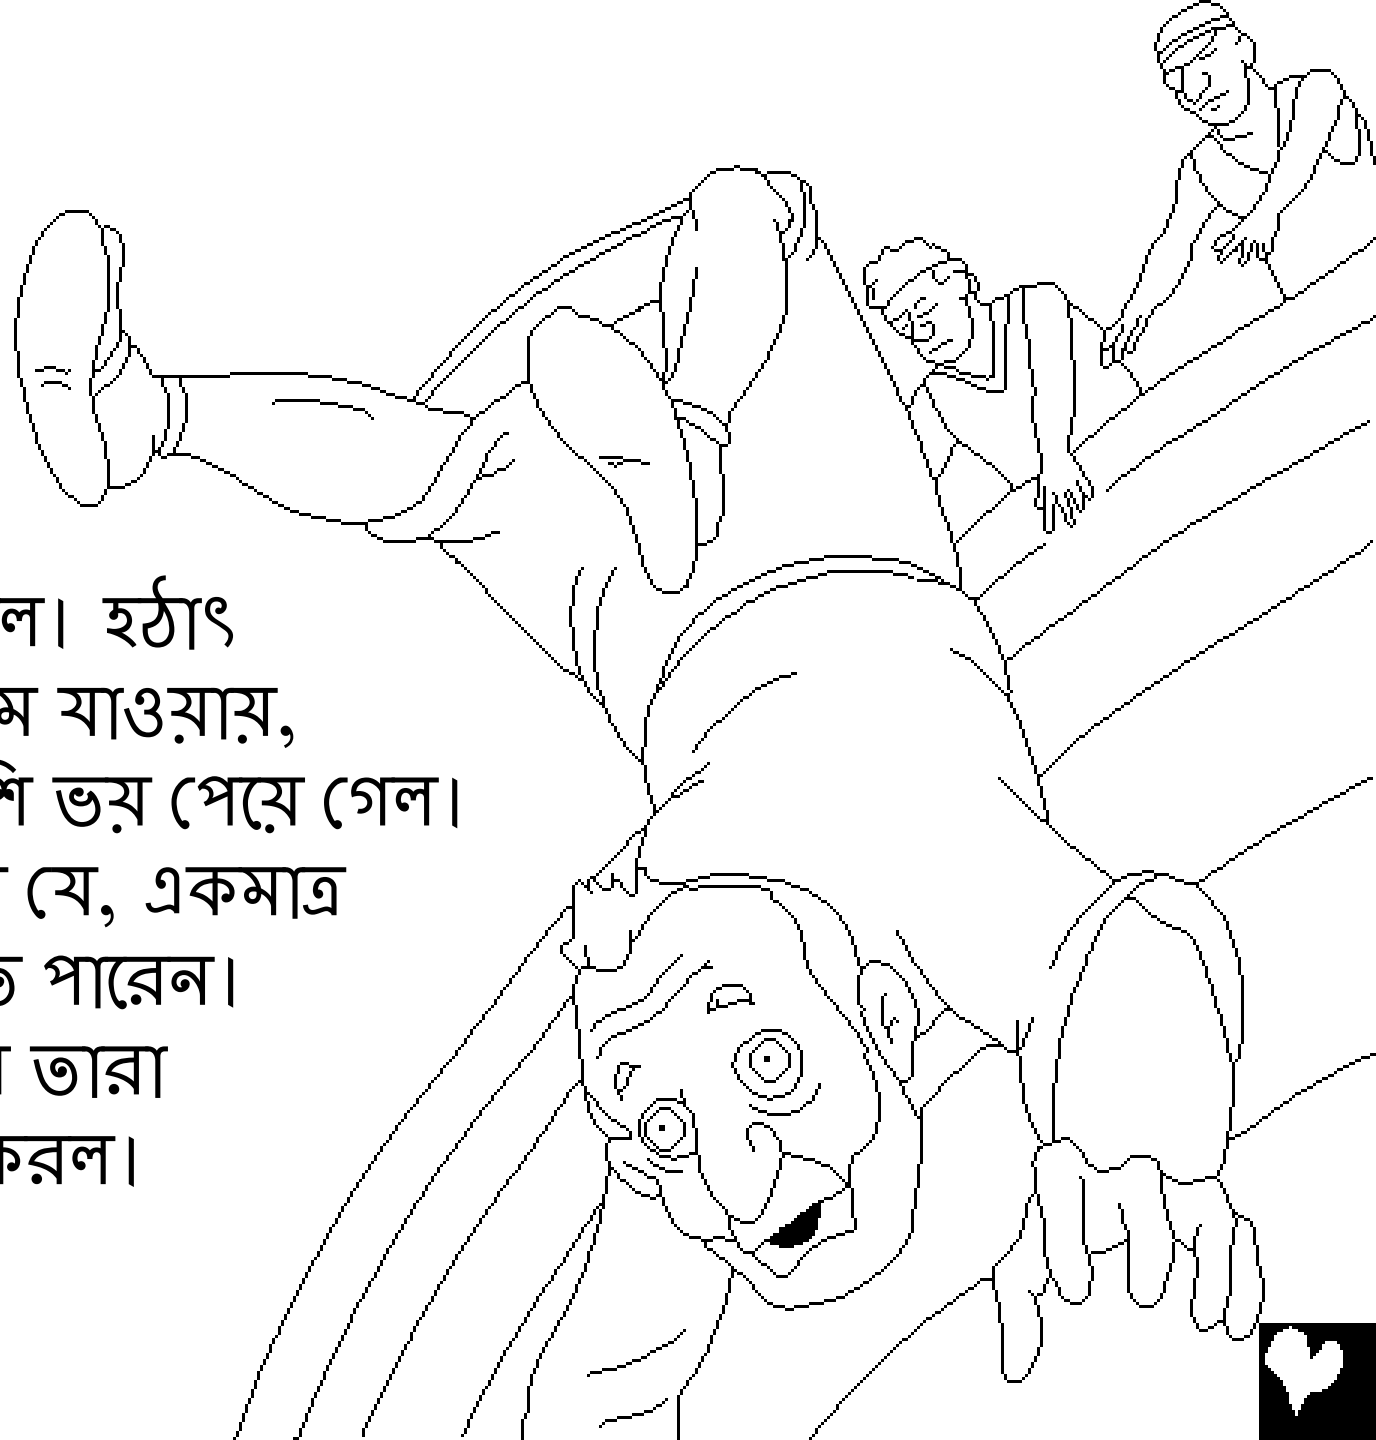 ল। হঠাৎ
যাওয়ায়,
ভয় পেয়ে গেল।
যে, একমাত্র
পারেন।
তারা
করল।